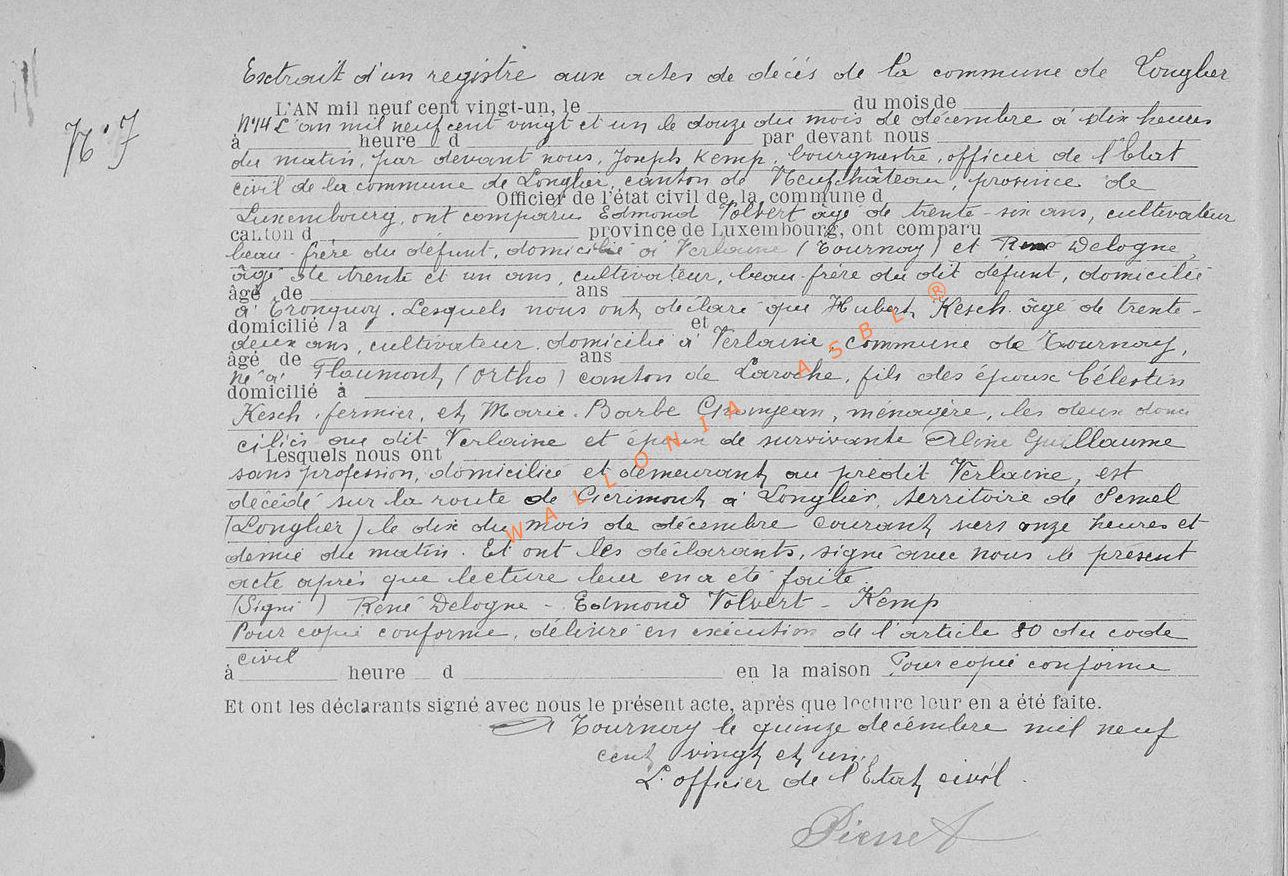 Extrait d'un registre aux actes de décès de la commune de Longlier
L'AN mil neuf cent vingt-un, le du mois de
N°14 L'an mil neuf cent vingt et un le douze du mois de décembre à dix heures
à heure d par devant nous
N° 7
du matin, par devant nous, Joseph Kemp, bourgmestre, officier de l'Etat
civil de la commune de Longlier, canton de Neufchâteau, province de
Officier de l'état civil de la commune d
Luxembourg, ont comparu Edmond Volvert âgé de trente-six ans, cultivateur
canton d province de Luxembourg, ont comparu
beau-frère du défunt, domicilié à Verlaine (Tournay) et René Delogne
âgé de trente et un ans, cultivateur, beau-frère du dit défunt, domicilié
âgé de ans
à Tronquoy. Lesquels nous ont déclaré que Hubert Kesch âgé de trente-
domicilié à et
deux ans, cultivateur, domicilié à Verlaine, commune de Tournay,
âgé de ans
né à Flaumont (Ortho) canton de Laroche, fils des époux Célestin
domicilié à
Kesch, fermier, et Marie-Barbe Grongean, ménagère, les deux domi
ciliés au dit Verlaine et époux de survivante Aline Guillaume
Lesquels nous ont
sans profession, domiciliée et demeurant au prédit Verlaine, est
décédé sur la route de Gerimont à Longlier, territoire de Semel
(Longlier) le dix du mois de décembre courant vers onze heures et
demie du matin. Et ont les déclarants, signé avec nous le présent
acte après que lecture leur en a été faite.
(Signé) René Delogne - Edmond Volvert - Kemp
Pour copie conforme, délivré en exécution de l'article 80 du code
civil
à heure d en la maison Pour copie conforme
Et ont les déclarants signé avec nous le présent acte, après que lecture leur en a été faite.
A Tournay le quinze décembre mil neuf
cent vingt et un.
L'officier de l'Etat civil.
Pierret
WALLONIA ASBL ®